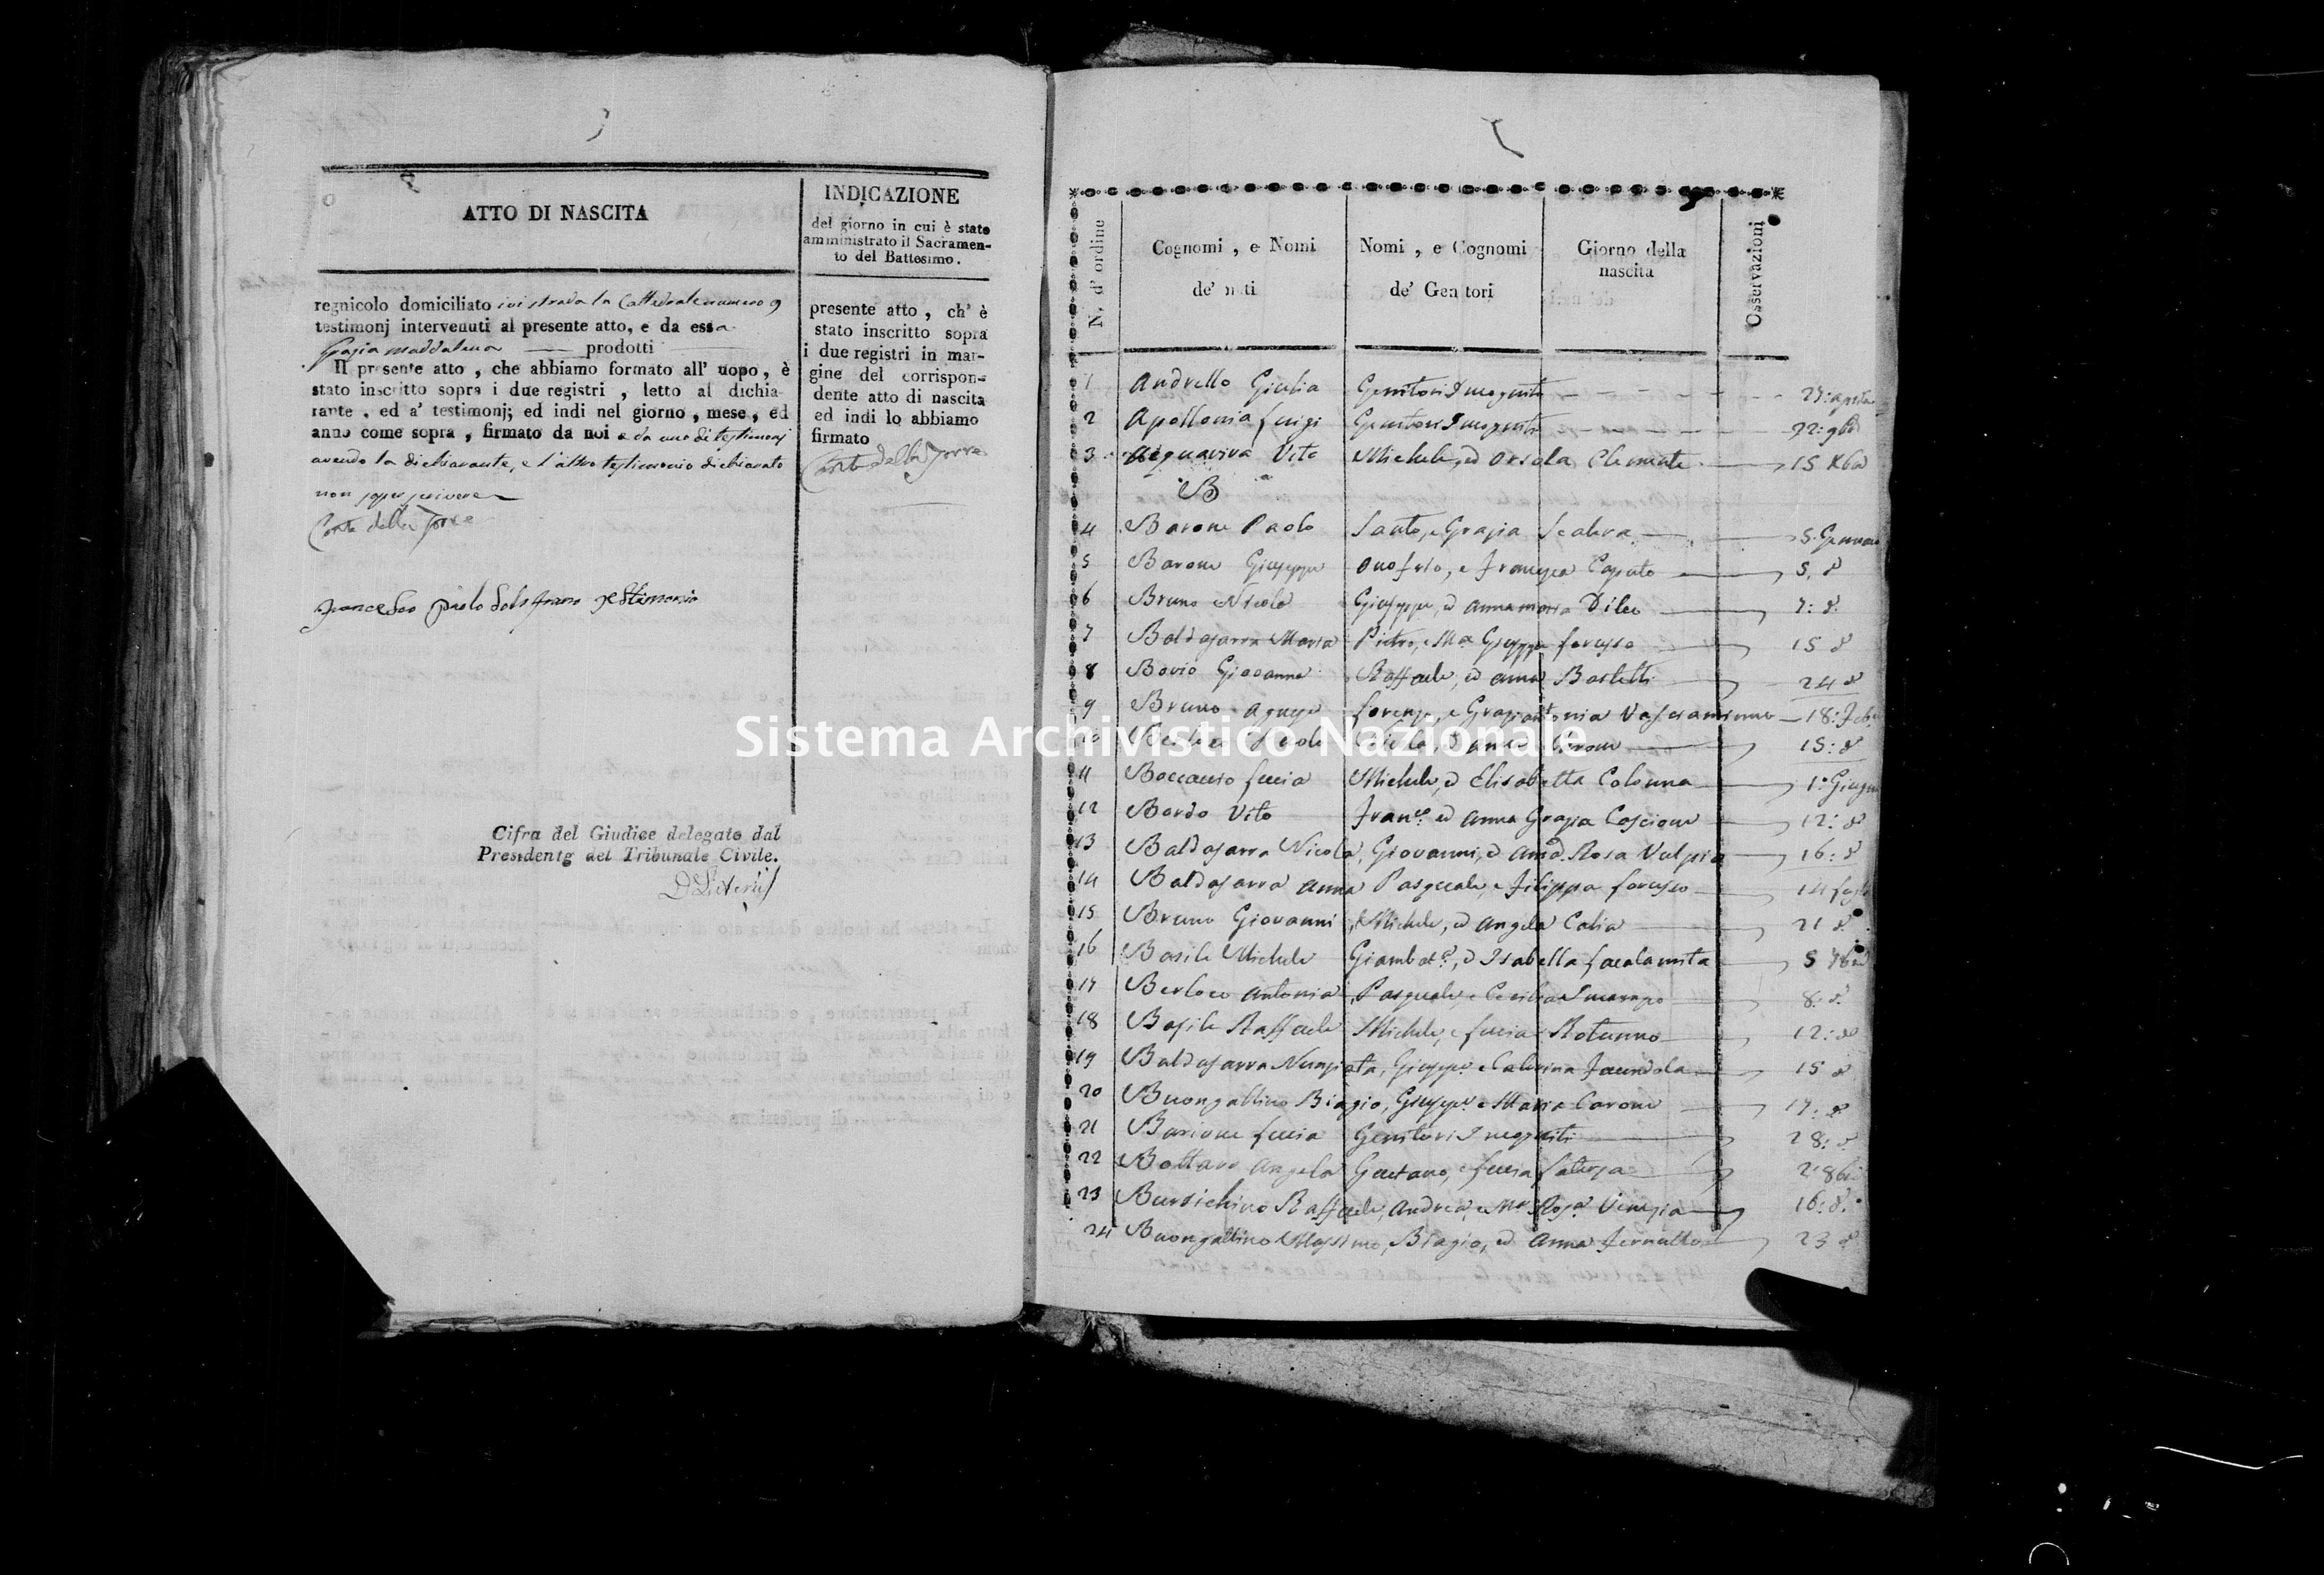 ATTO DI NASCITA
INDICAZIONE
del giorno in cui è stato
amministrato il Sacramen-
to del Battesimo.
regnicolo domiciliato ivi strada la Cattedrale numero 9
testimonj intervenuti al presente atto, e da essa
Grazia Maddalena prodotti
Il presente atto , che abbiamo formato all' uopo , è
stato inscritto sopra i due registri , letto al dichia-
rante , ed a' testimonj; ed indi nel giorno , mese , ed
anno come sopra , firmato da noi e da uno di testimonj
avendo la dichiarante, e l'altro testimonio dichiarato
non saper scrivere
Conte della Torre
Francesco Paolo testimonio
presente atto , ch' è
stato inscritto sopra
i due registri in mar-
gine del corrispon-
dente atto di nascita
ed indi lo abbiamo
firmato
Conte della Torre
Cifra del Giudice delegato dal
Presidente del Tribunale Civile.
N. d' ordine
Cognomi , e Nomi
de' nati
Nomi , e Cognomi
de' Genitori
Giorno della
nascita
Osservazioni
1 Andrello Giulia Genitori Incogniti
2 Apollonia Luigi Genitori Incogniti 22: 9bre
3 Acquaviva Vito Michele, ed Orsola Clemente 15 Xbre
B
4 Barone Paolo Santo, e Grazia Scalera 5. Gennaro
5 Barone Giuseppe Onofrio, e Francesca Caputo 5. d
6 Bruno Nicola Giuseppe, ed Annamaria Dileo 7: d.
7 Baldasarra Maria Pietro, e Ma Giuseppa Lorusso 15 d
8 Bovio Giovanna Raffaele, ed Anna Barletti 24 d
9 Bruno Agnese Lorenzo, e Graziantonia 18: Feb
10 15: d
11 Boccaccio Lucia Michele, ed Elisabetta Colonna 1° Giugno
12 Bordo Vito Franco ed Anna Grazia Coscione 12: d
13 Baldasarra Nicola, Giovanni, ed Anna Rosa Vulpio 16: d
14 Baldasarra Anna Pasquale, e Filippa Lorusso 14
15 Bruno Giovanni Michele, ed Angela Calia 21 d
16 Basile Michele Giambatta, ed Isabella Lacalamita 5 7bre
17 Berloco Antonia Pasquale, e Cecilia 8: d.
18 Basile Raffaele Michele, e Lucia Rotunno 12: d
19 Baldasarra Nunziata, Giuseppe e Caterina Facendola 15 d
20 Buongallino Biagio, Giuseppe e Maria Carone 17: d
21 Barione Lucia Genitori Incogniti 28: d
22 Bottaro Angela Gaetano, e Lucia Laterza 2: 8bre
23 Raffaele, Andrea, e Ma Rosa Venezia 16: d.
24 Buongallino Massimo, Biagio, ed Anna Ferrulli 23 d
Sistema Archivistico Nazionale